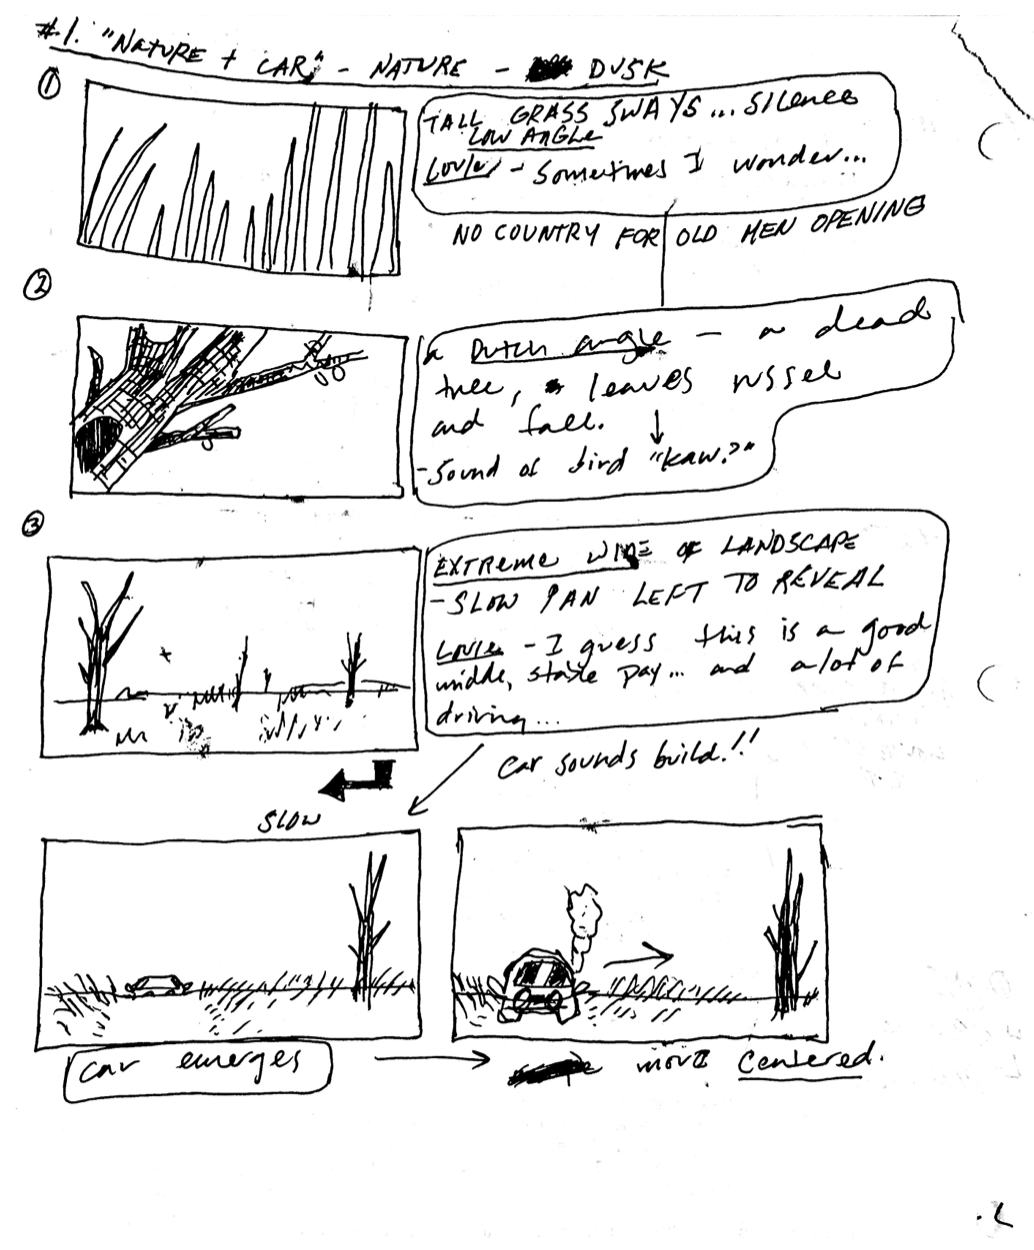 #1. "NATURE + CAR" - NATURE - DUSK
①
TALL GRASS SWAYS... SILENCE
LOW ANGLE
Louie - Sometimes I wonder...
NO COUNTRY FOR OLD MEN OPENING
②
a Dutch angle - a dead
tree, leaves russel
and fall.
- Sound of bird "kaw?"
③
EXTREME WIDE OF LANDSCAPE
- SLOW PAN LEFT TO REVEAL
Louie - I guess this is a good
middle, stable pay... and a lot of
driving...
car sounds build!!
SLOW
car emerges
more centered.